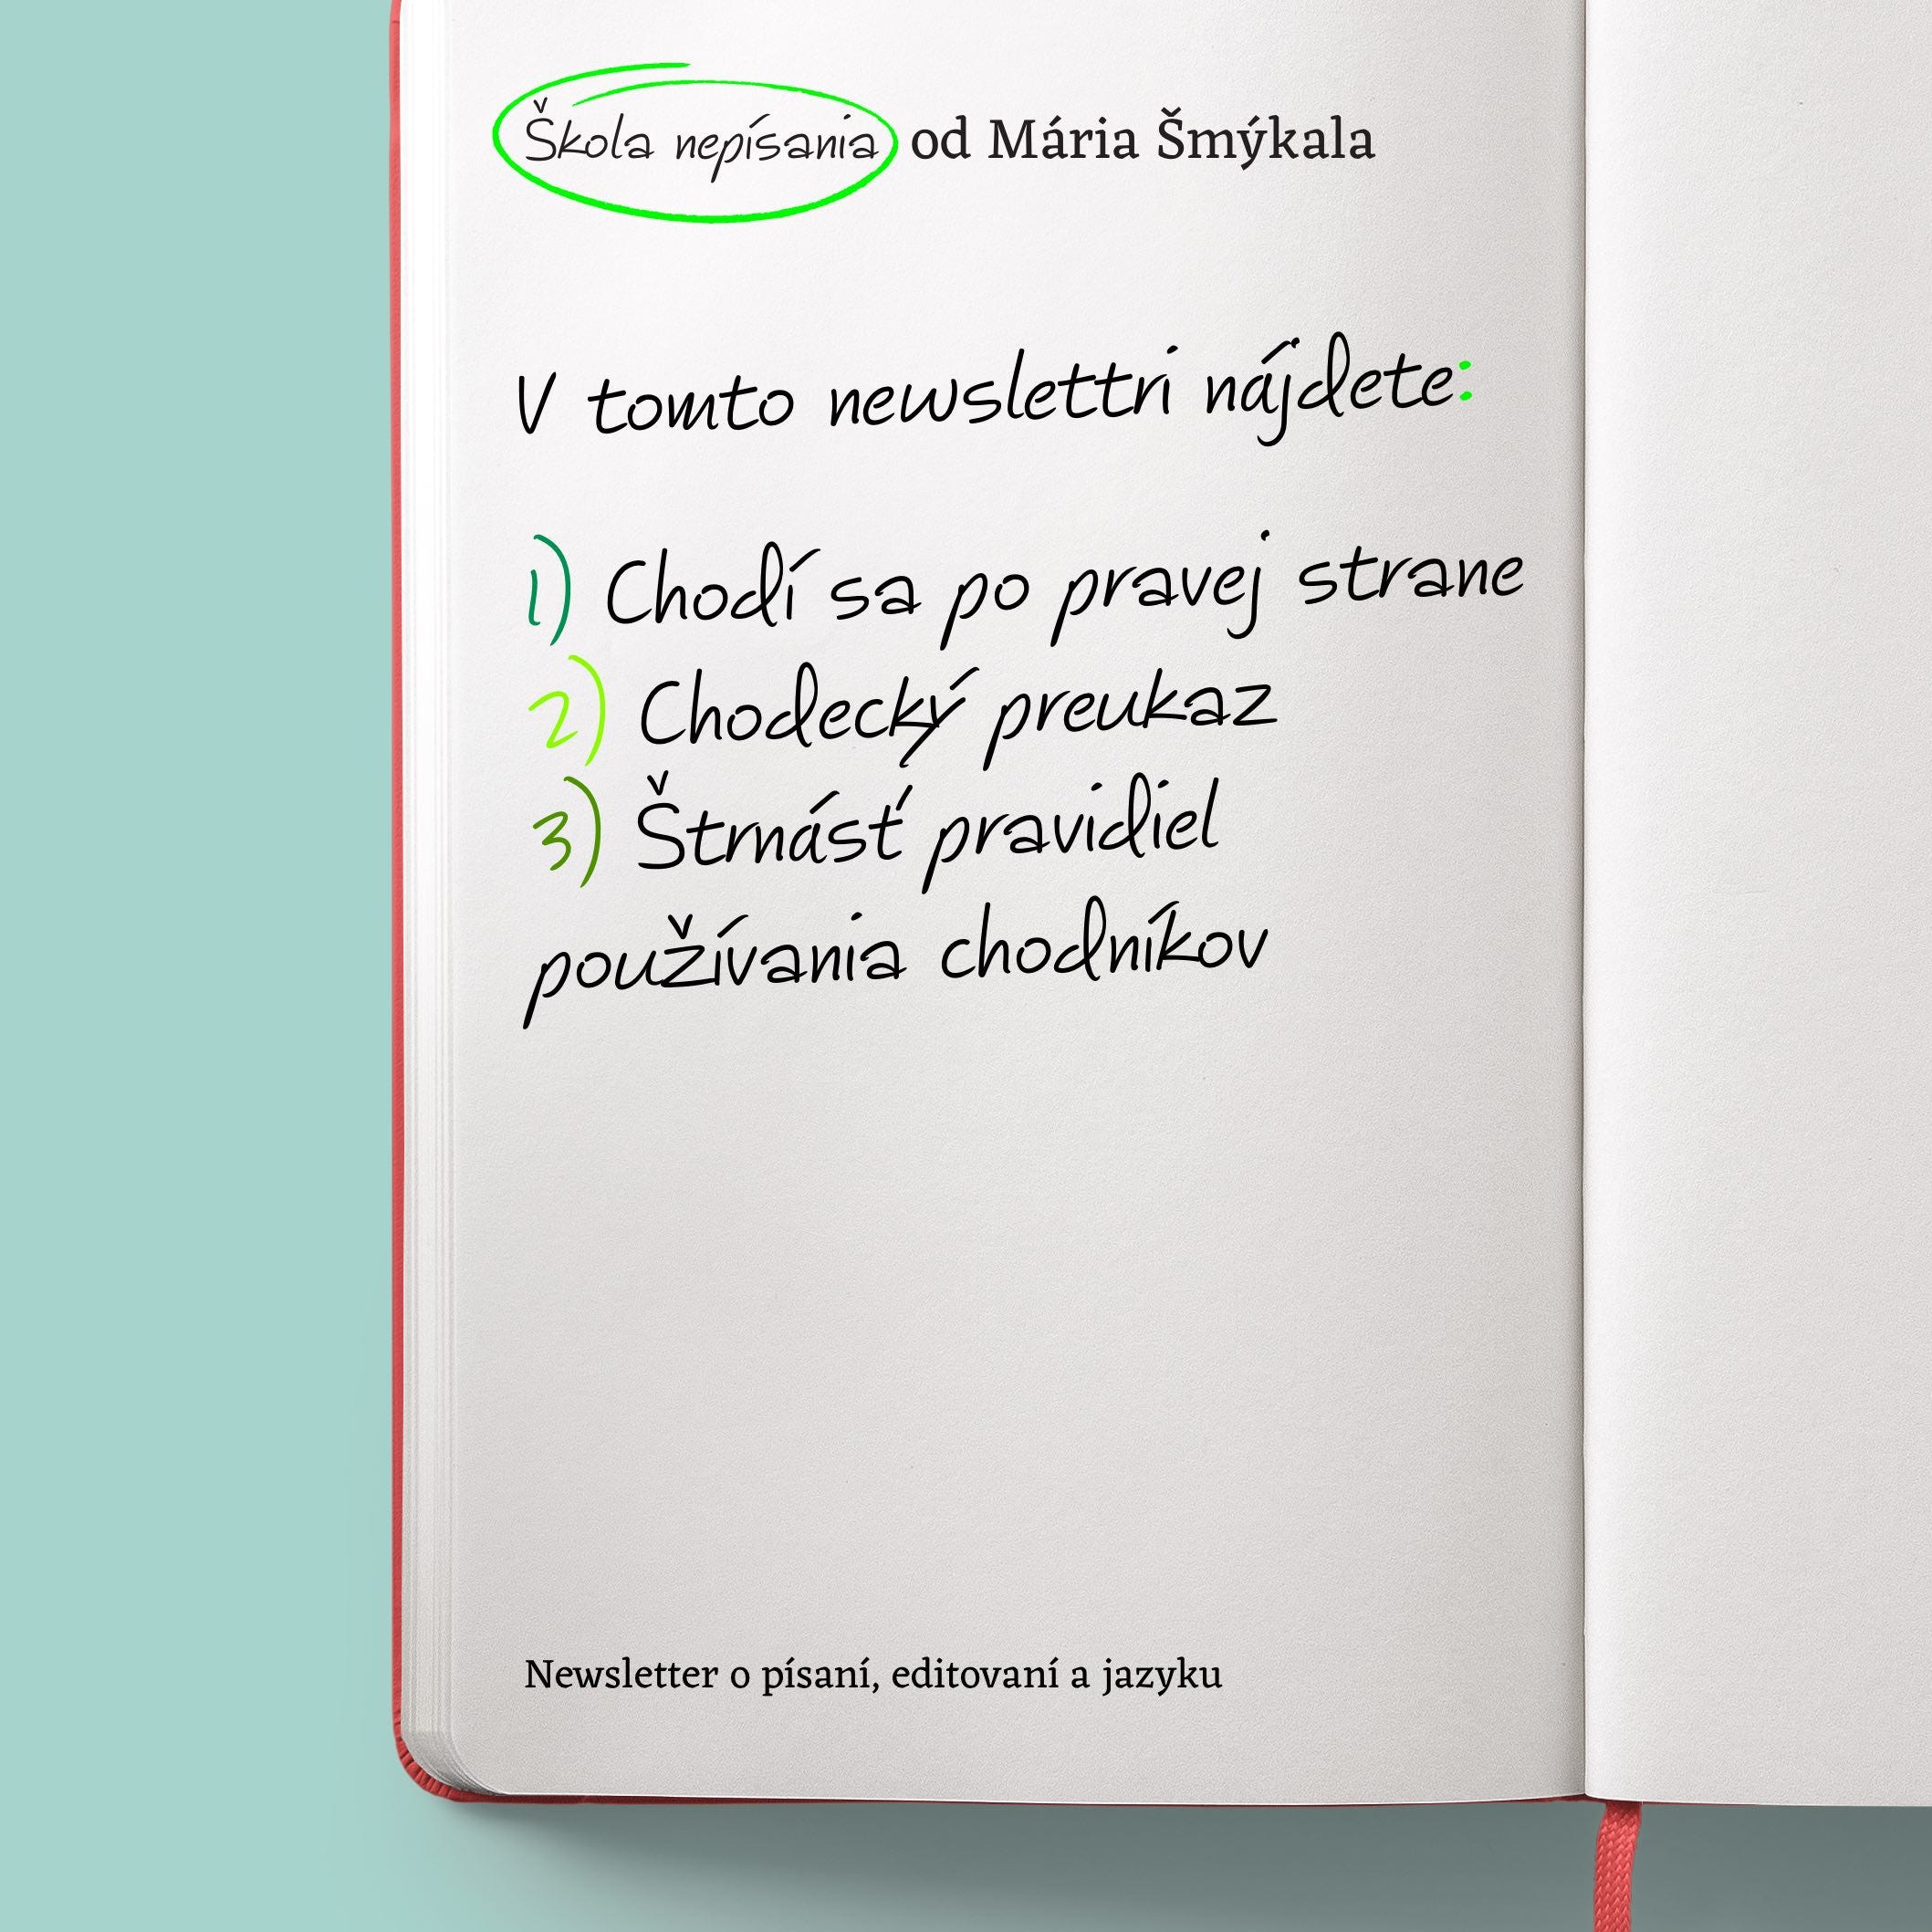 Škola nepísania od Mária Šmýkala
V tomto newslettri nájdete:
1) Chodí sa po pravej strane
2) Chodecký preukaz
3) Štrnásť pravidiel
používania chodníkov
Newsletter o písaní, editovaní a jazyku